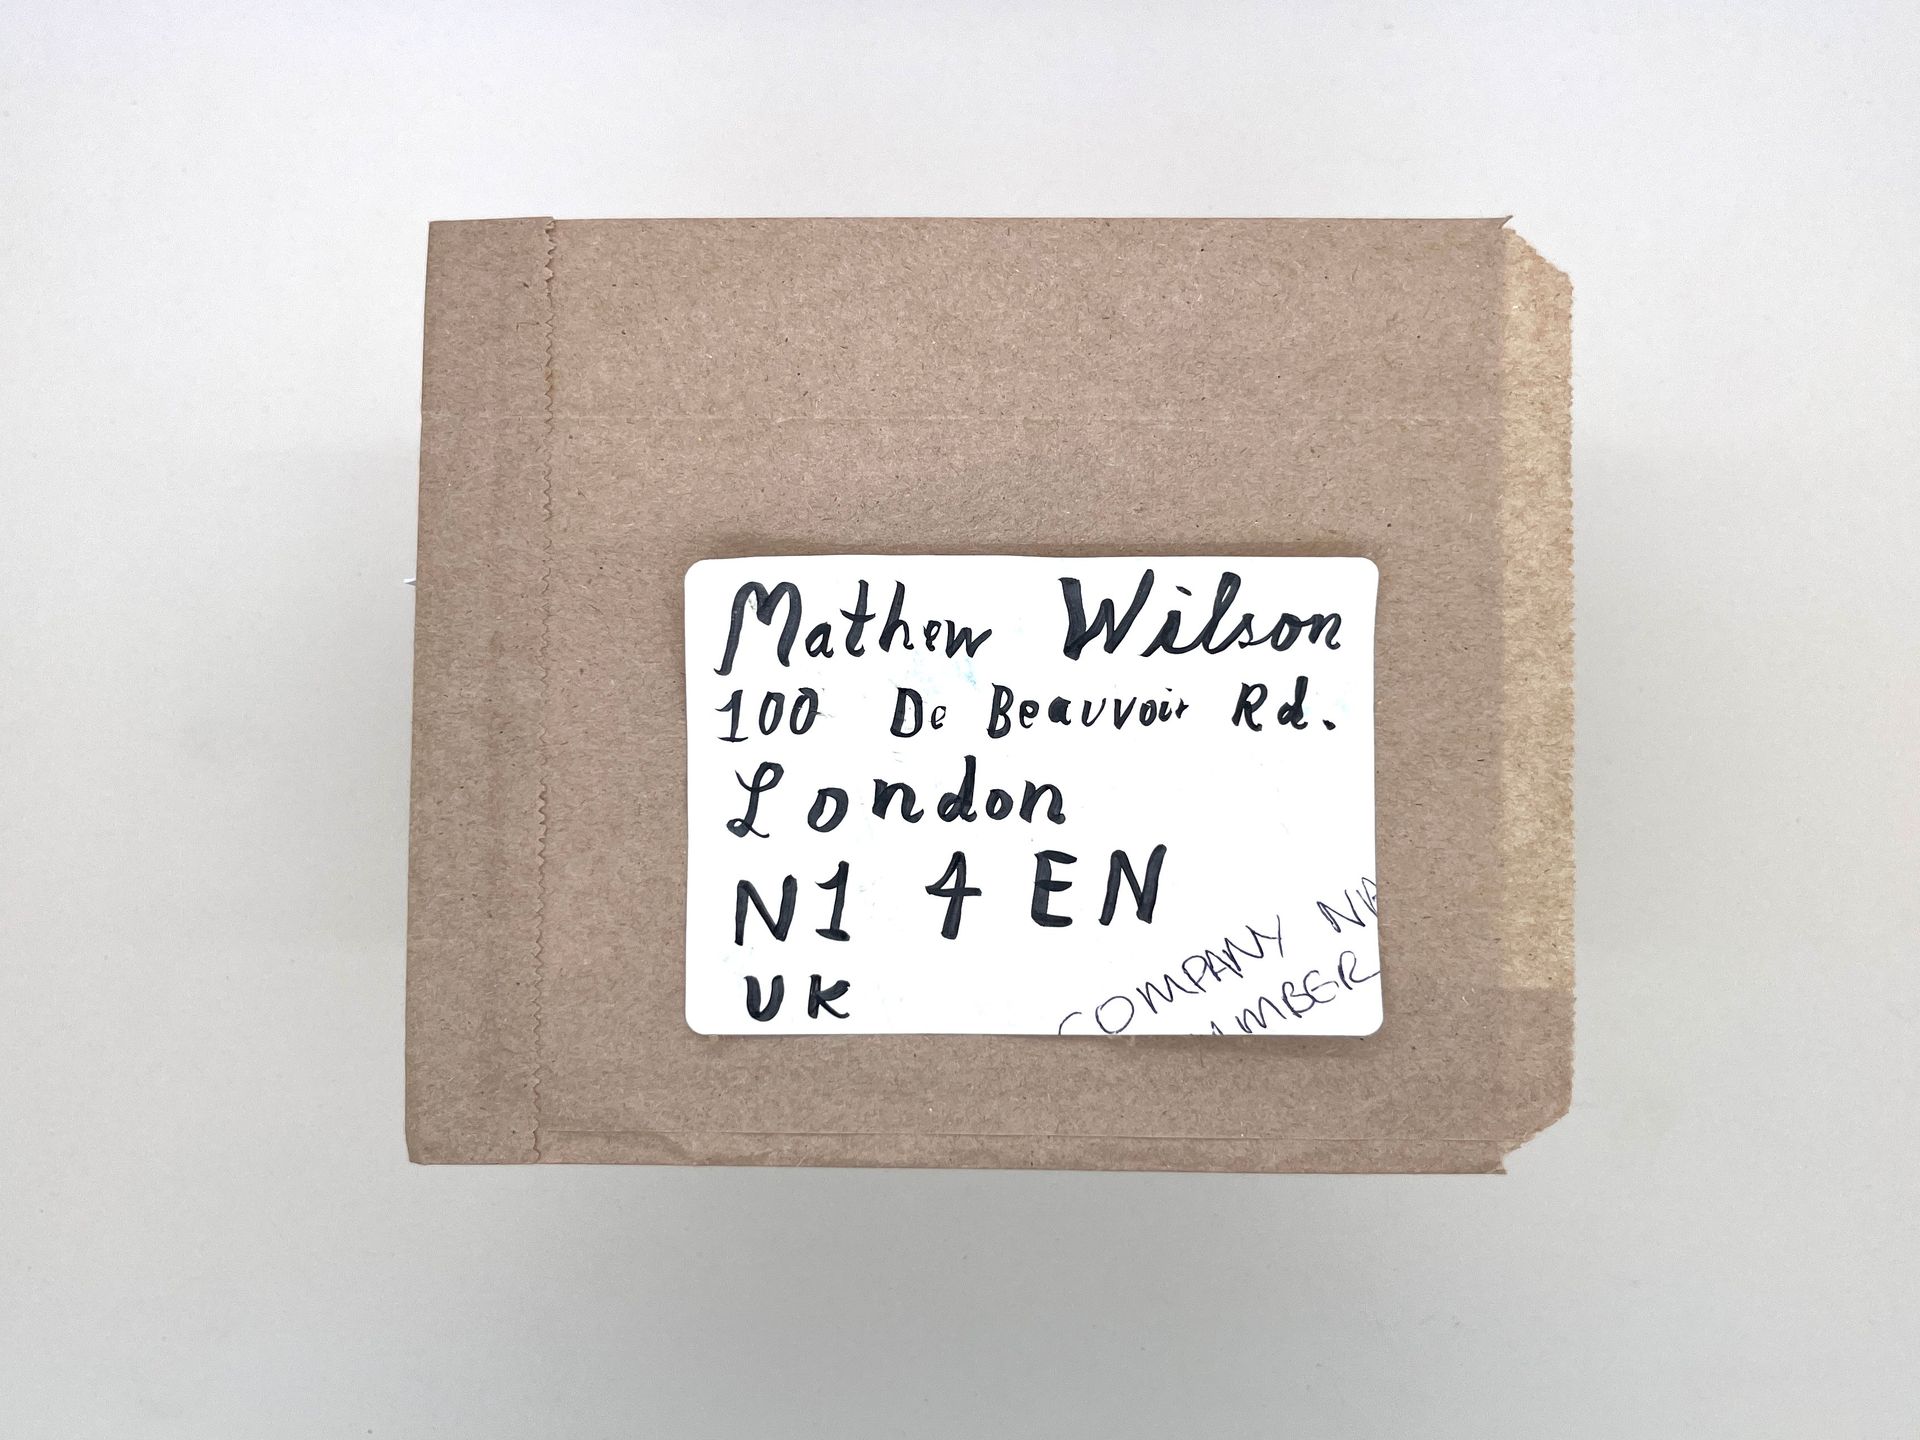 Mathew Wilson
100 De Beauvoir Rd.
London
N1 4EN
UK
COMPANY